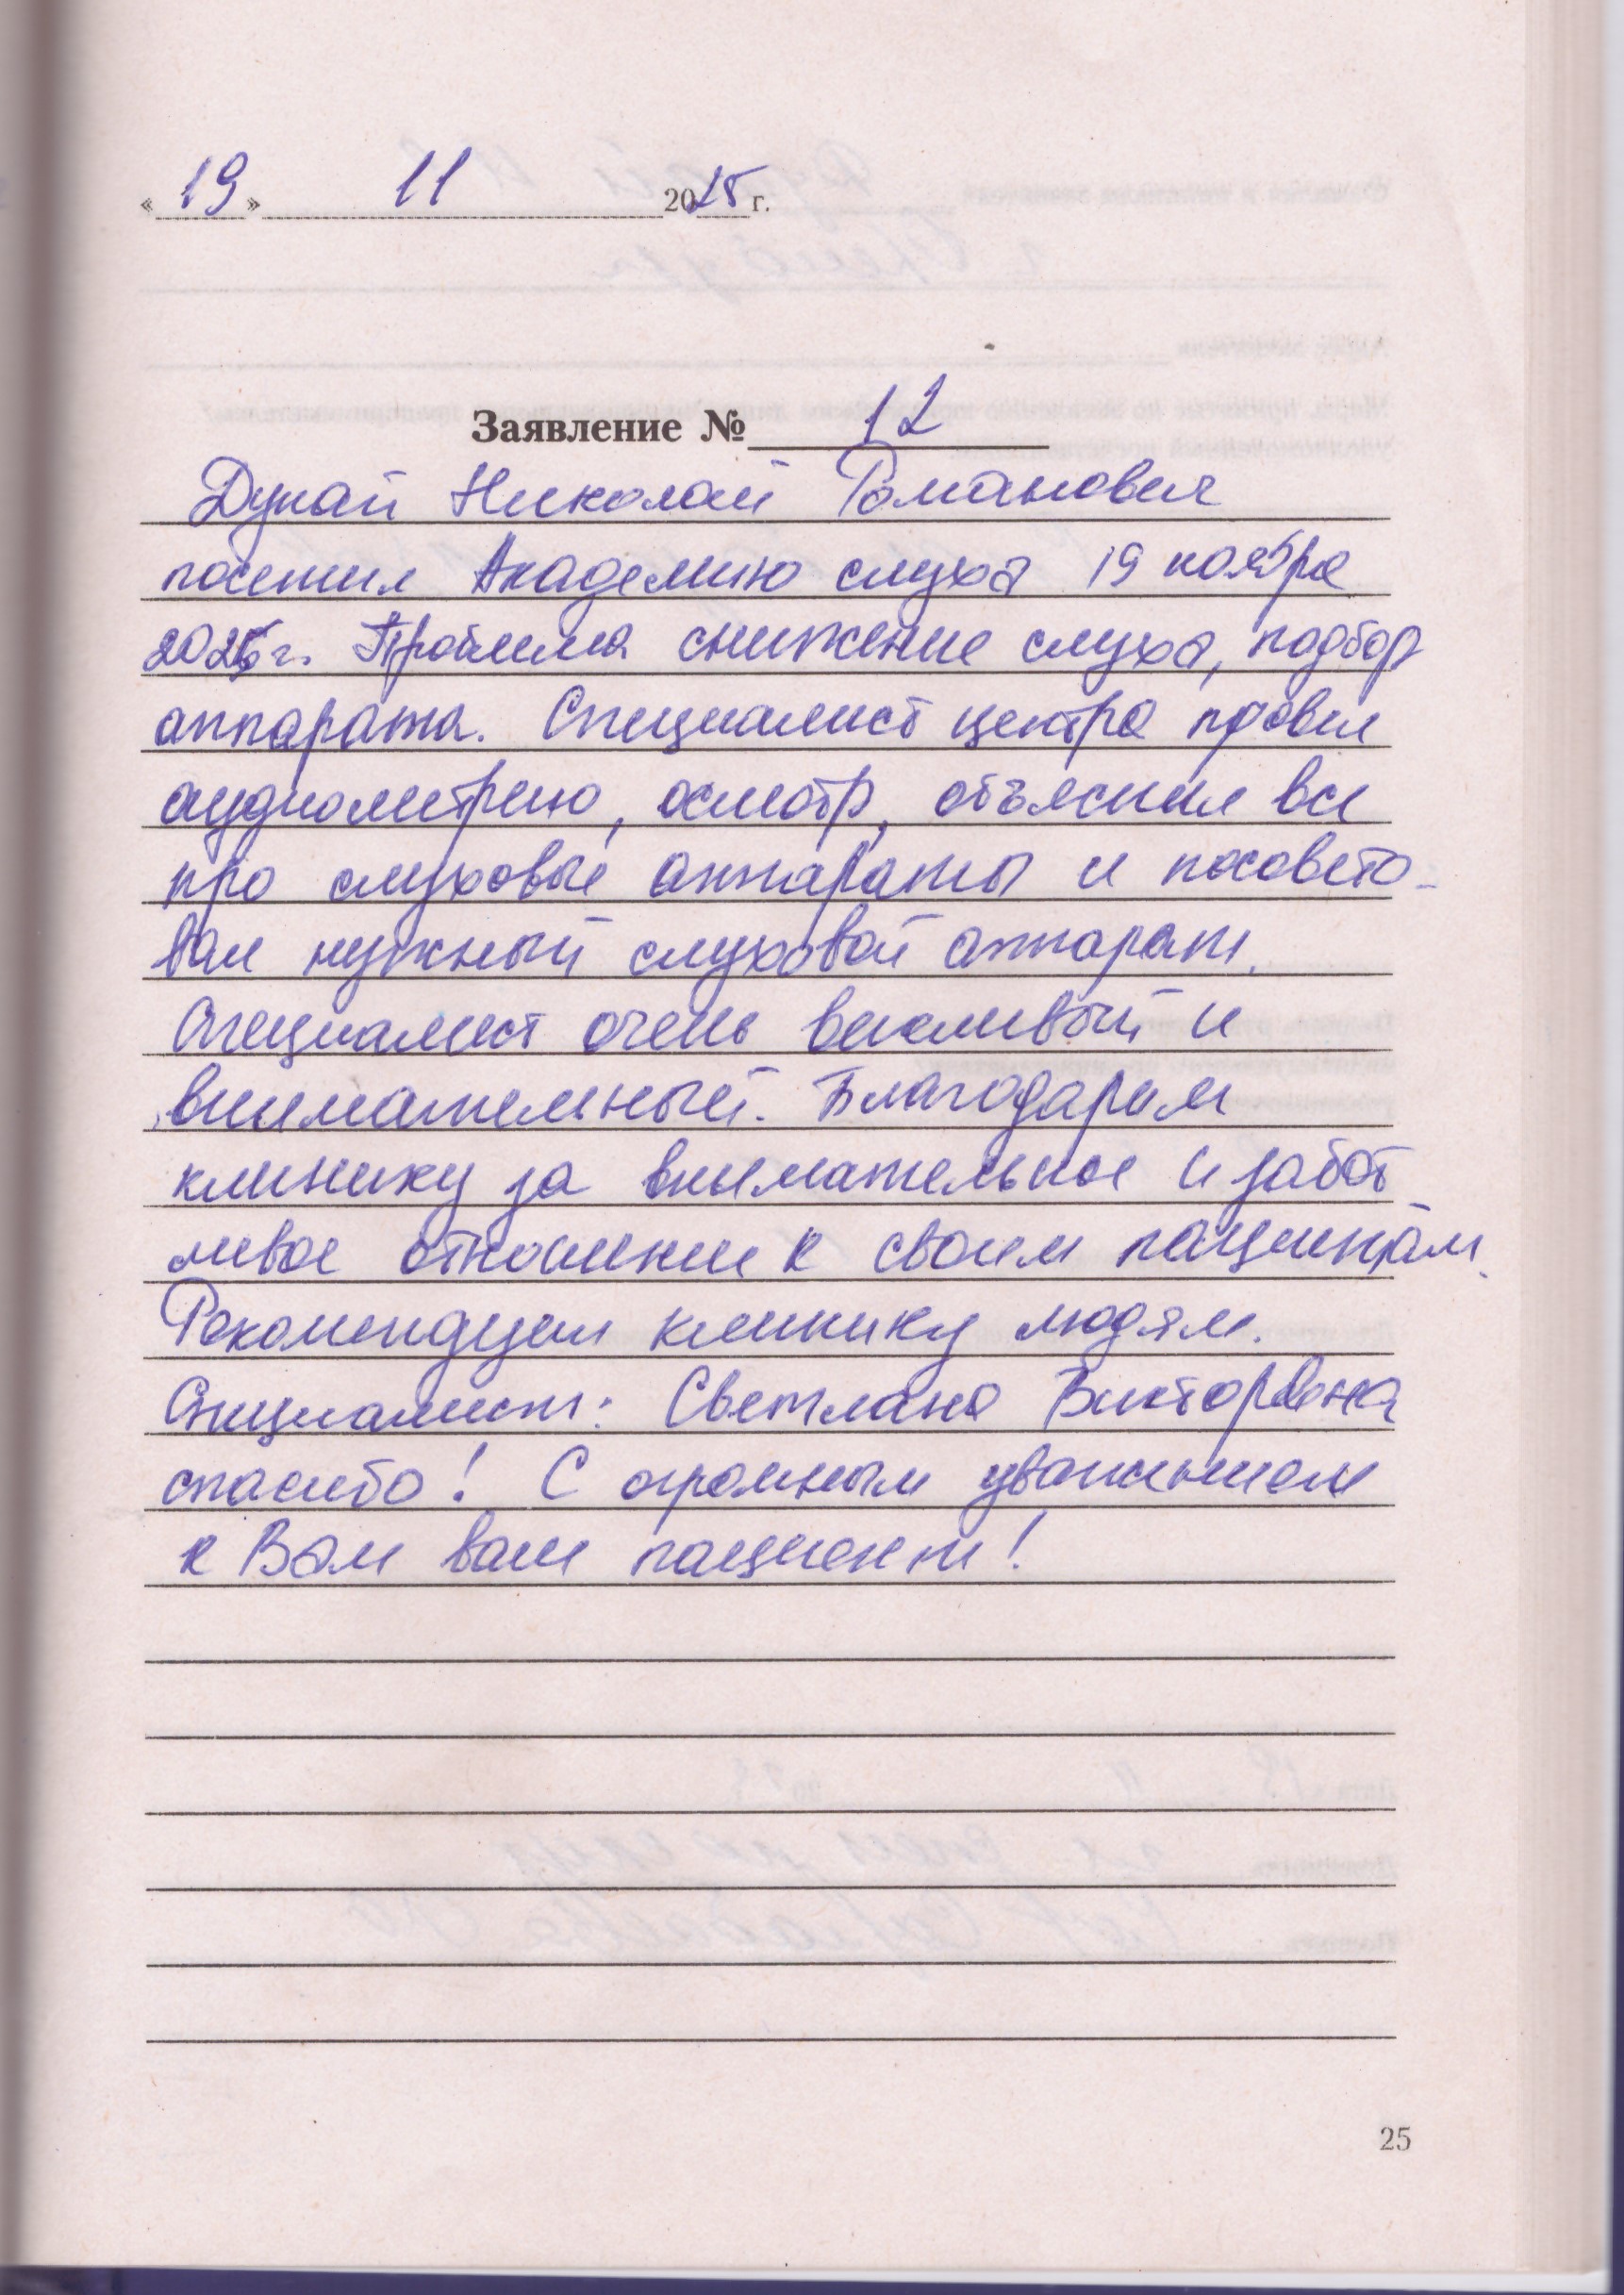 «19» 11 2025 г.
Заявление № 12
Дунай Николай Романович
посетил Академию слуха 19 ноября
2025г. Проблема снижение слуха, подбор
аппарата. Специалист центра провел
аудиометрию, осмотр, объяснил все
про слуховые аппараты и посовето-
вал нужный слуховой аппарат.
Специалист очень вежливый и
внимательный. Благодарим
клинику за внимательное и забот
ливое отношение к своим пациентам.
Рекомендуем клинику людям.
Специалист: Светлана Викторовна
спасибо! С огромным уважением
к Вам ваш пациент!
25